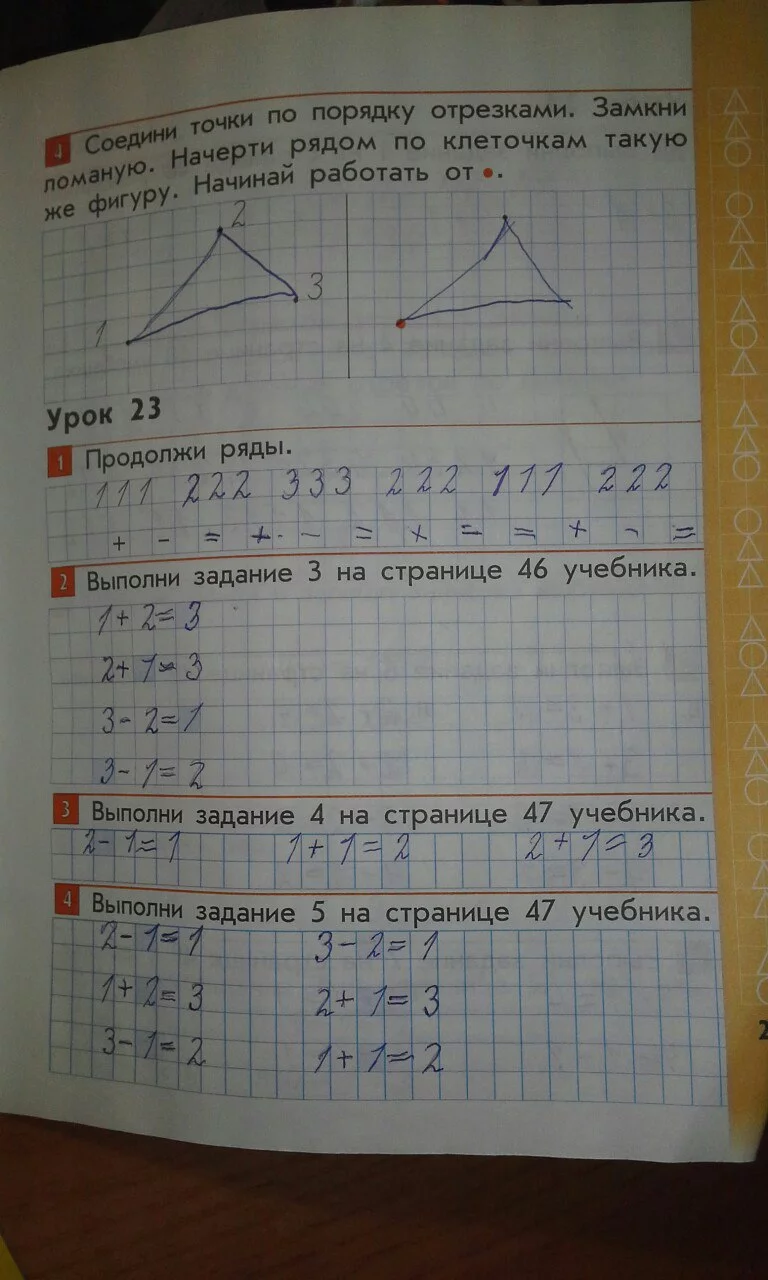 4 Соедини точки по порядку отрезками. Замкни
ломаную. Начерти рядом по клеточкам такую
же фигуру. Начинай работать от •.
2
3
1
Урок 23
1 Продолжи ряды.
111 222 333 222 111 222
+ - = + · - = + = = + - =
2 Выполни задание 3 на странице 46 учебника.
1+2=3
2+1=3
3-2=1
3-1=2
3 Выполни задание 4 на странице 47 учебника.
2-1=1 1+1=2 2+1=3
4 Выполни задание 5 на странице 47 учебника.
2-1=1 3-2=1
1+2=3 2+1=3
3-1=2 1+1=2
2